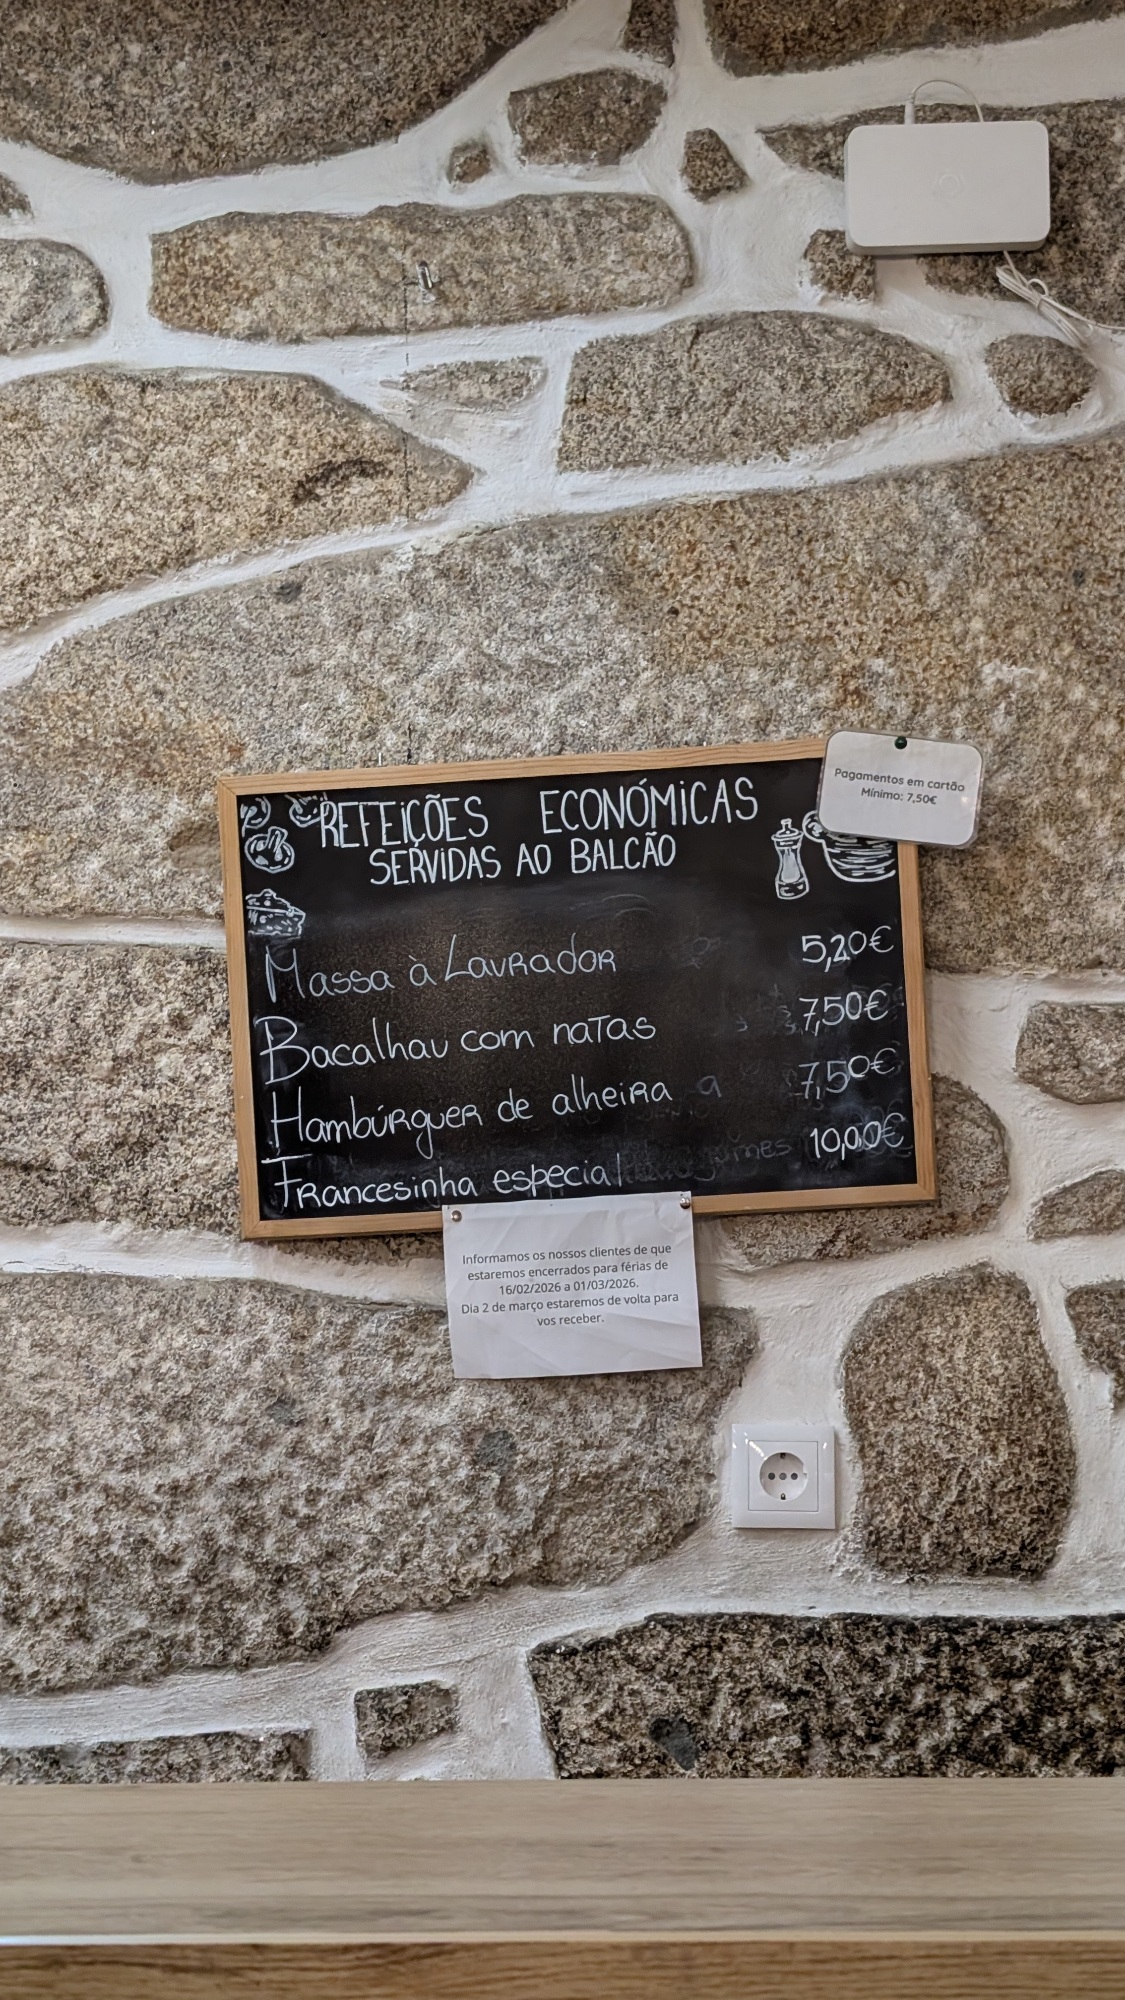 REFEIÇÕES ECONÓMICAS
SERVIDAS AO BALCÃO
Pagamentos em cartão
Mínimo: 7,50€
Massa à Lavrador 5,20€
Bacalhau com natas 7,50€
Hambúrguer de alheira 7,50€
Francesinha especial 10,00€
Informamos os nossos clientes de que
estaremos encerrados para férias de
16/02/2026 a 01/03/2026.
Dia 2 de março estaremos de volta para
vos receber.